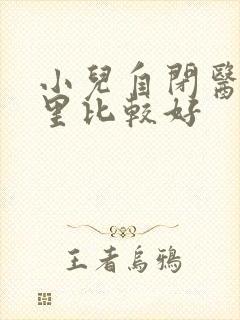 小兒自閉醫
里比較好
王者烏鴉